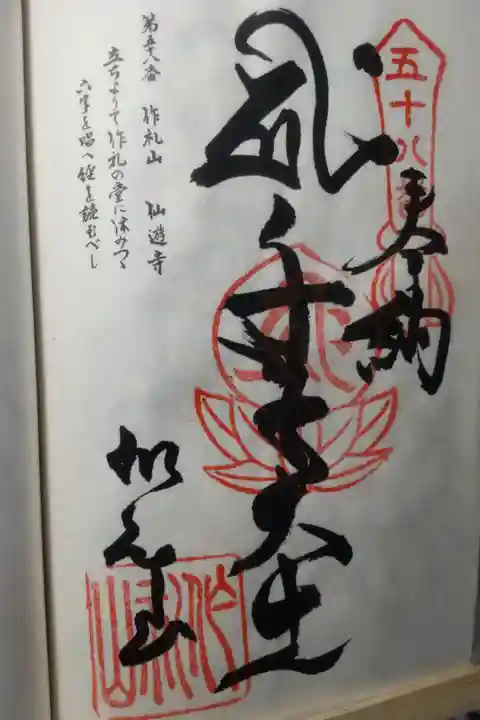 五十八番
奉納
千手大士
作礼山
第五十八番 作礼山 仙遊寺
立ちよりて作礼の堂に休みつゝ
六字を唱へ経を読むべし